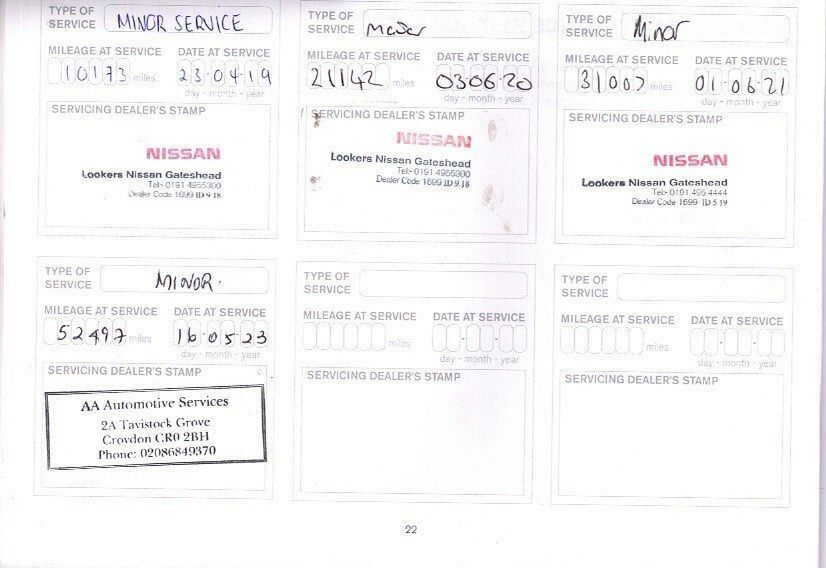 TYPE OF SERVICE MINOR SERVICE
MILEAGE AT SERVICE DATE AT SERVICE
10173 miles 23-04-19
day - month - year
SERVICING DEALER'S STAMP
NISSAN
Lookers Nissan Gateshead
Tel:- 0191 4955300
Dealer Code 1699 ID 9.18
TYPE OF SERVICE Major
MILEAGE AT SERVICE DATE AT SERVICE
21142 miles 03-06-20
day - month - year
SERVICING DEALER'S STAMP
NISSAN
Lookers Nissan Gateshead
Tel:- 0191 4955300
Dealer Code 1699 ID 9.18
TYPE OF SERVICE Minor
MILEAGE AT SERVICE DATE AT SERVICE
31007 miles 01-06-21
day - month - year
SERVICING DEALER'S STAMP
NISSAN
Lookers Nissan Gateshead
Tel:- 0191 495 4444
Dealer Code 1699 ID 5.19
TYPE OF SERVICE MINOR.
MILEAGE AT SERVICE DATE AT SERVICE
52497 miles 16-05-23
day - month - year
SERVICING DEALER'S STAMP
AA Automotive Services
2A Tavistock Grove
Croydon CR0 2BH
Phone: 02086849370
TYPE OF SERVICE
MILEAGE AT SERVICE DATE AT SERVICE
miles
day - month - year
SERVICING DEALER'S STAMP
TYPE OF SERVICE
MILEAGE AT SERVICE DATE AT SERVICE
miles
day - month - year
SERVICING DEALER'S STAMP
22